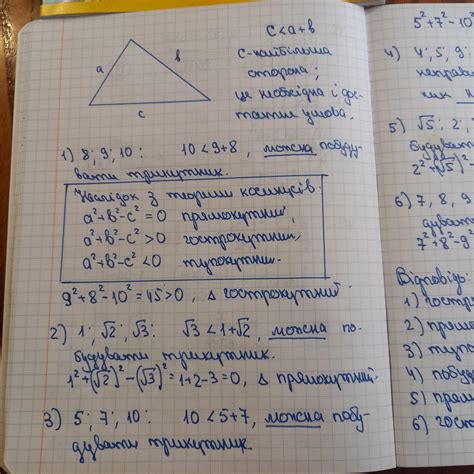 a
b
c
c<a+b
c-найбільша
сторона;
це необхідна і дос-
татня умова.
1) 8; 9; 10: 10<9+8, можна побуду-
вати трикутник.
Наслідок з теореми косинусів:
a²+b²-c²=0 прямокутний,
a²+b²-c²>0 гострокутник,
a²+b²-c²<0 тупокутник.
9²+8²-10²=45>0, Δ гострокутний.
2) 1; √2; √3: √3<1+√2, можна по-
будувати трикутник.
1²+(√2)²-(√3)²=1+2-3=0, Δ прямокутний.
3) 5; 7; 10: 10<5+7, можна побу-
дувати трикутник.
5²+7²-10²
4) 4; 5; 9:
неправи
ник
5) √5; 2;
будувати
2²+(√5)²-
6) 7, 8, 9
дувати
7²+8²-9²
Відповідь:
1) гостро
2) прямо
3) тупо
4) побу
5) прям
6) гост